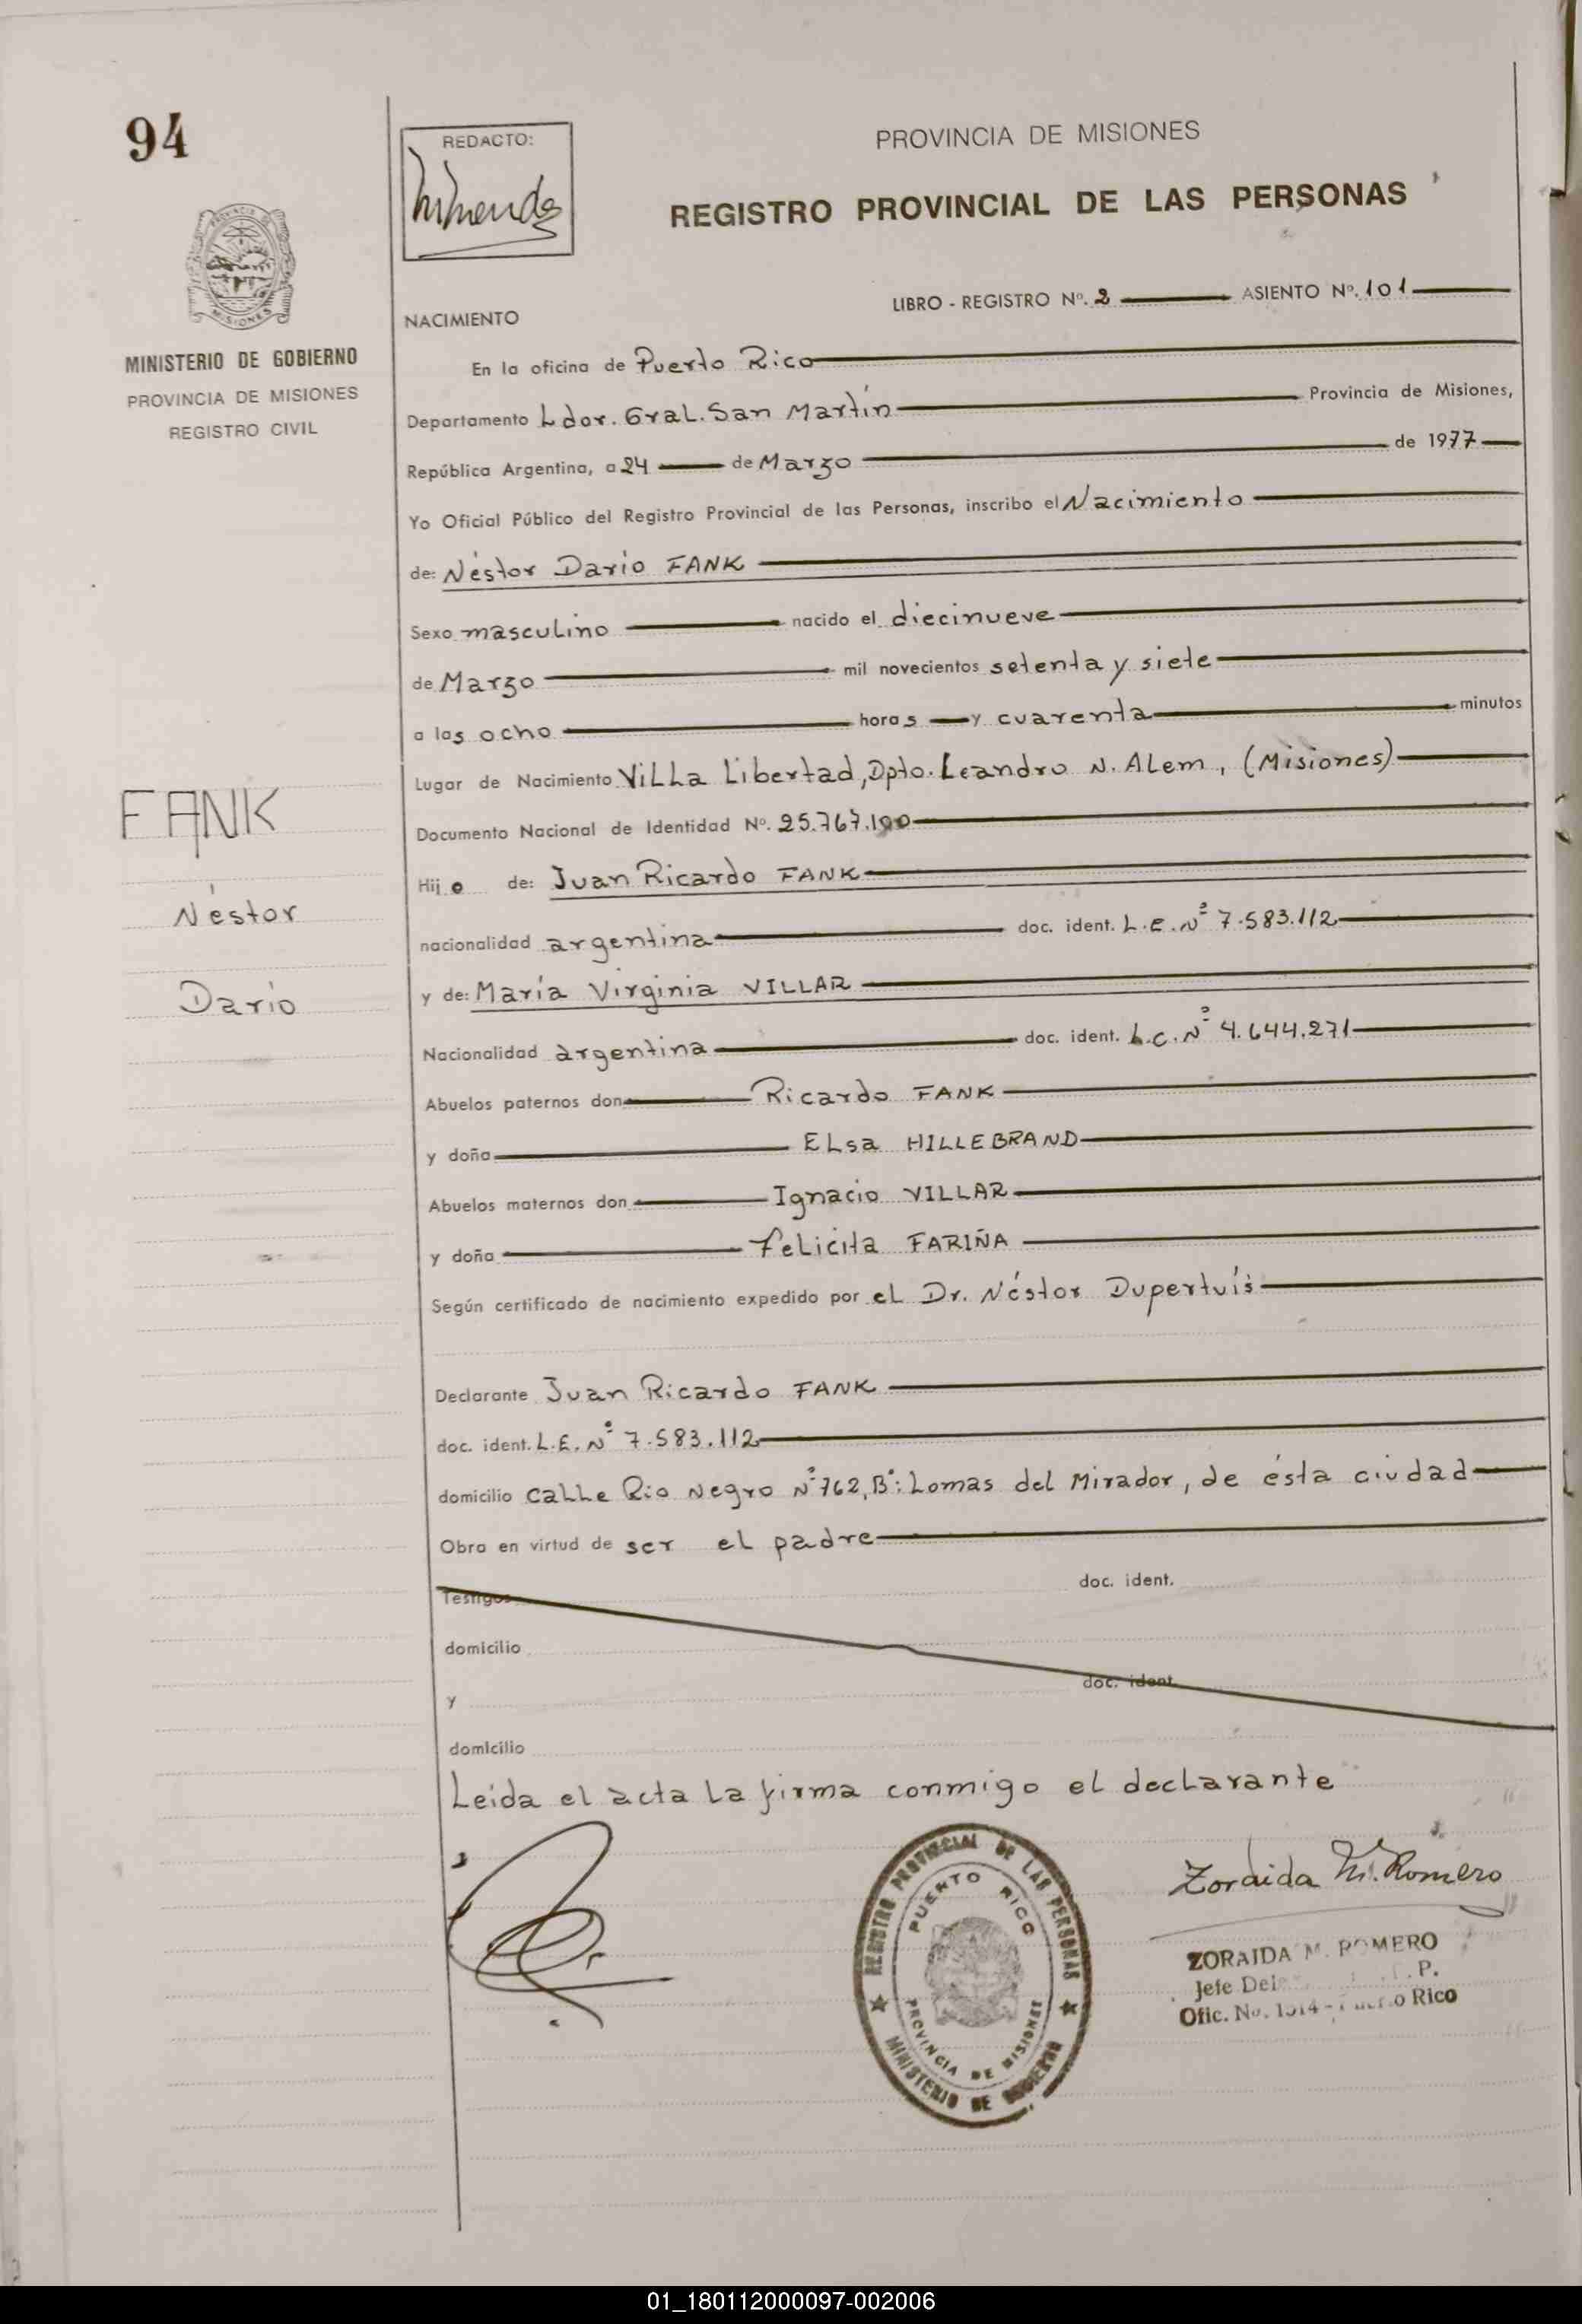 94
REDACTO:
PROVINCIA DE MISIONES
REGISTRO PROVINCIAL DE LAS PERSONAS
MINISTERIO DE GOBIERNO
PROVINCIA DE MISIONES
REGISTRO CIVIL
LIBRO - REGISTRO Nº. 2 ASIENTO Nº. 101
NACIMIENTO
En la oficina de Puerto Rico
Departamento Ldor. Gral. San Martín Provincia de Misiones,
República Argentina, a 24 de Marzo de 1977
Yo Oficial Público del Registro Provincial de las Personas, inscribo el Nacimiento
de: Néstor Darío FANK
Sexo masculino nacido el diecinueve
de Marzo mil novecientos setenta y siete
a las ocho horas y cuarenta minutos
Lugar de Nacimiento Villa Libertad, Dpto. Leandro N. Alem, (Misiones)
Documento Nacional de Identidad Nº. 25.767.190
FANK
Néstor
Darío
Hijo de: Juan Ricardo FANK
nacionalidad argentina doc. ident. L.E. Nº 7.583.112
y de: María Virginia VILLAR
Nacionalidad argentina doc. ident. L.C. Nº 4.644.271
Abuelos paternos don Ricardo FANK
y doña Elsa HILLEBRAND
Abuelos maternos don Ignacio VILLAR
y doña Felicita FARIÑA
Según certificado de nacimiento expedido por el Dr. Néstor Dupertuís
Declarante Juan Ricardo FANK
doc. ident. L.E. Nº 7.583.112
domicilio Calle Rio Negro Nº 762, Bº: Lomas del Mirador, de ésta ciudad
Obra en virtud de ser el padre
Testigos doc. ident.
domicilio
y doc. ident.
domicilio
Leída el acta la firma conmigo el declarante
REGISTRO PROVINCIAL DE LAS PERSONAS
PUERTO RICO
PROVINCIA DE MISIONES
MINISTERIO DE GOBIERNO
Zoraida M. Romero
ZORAIDA M. ROMERO
Jefe P.
Ofic. No. 1514 - Puerto Rico
01_180112000097-002006